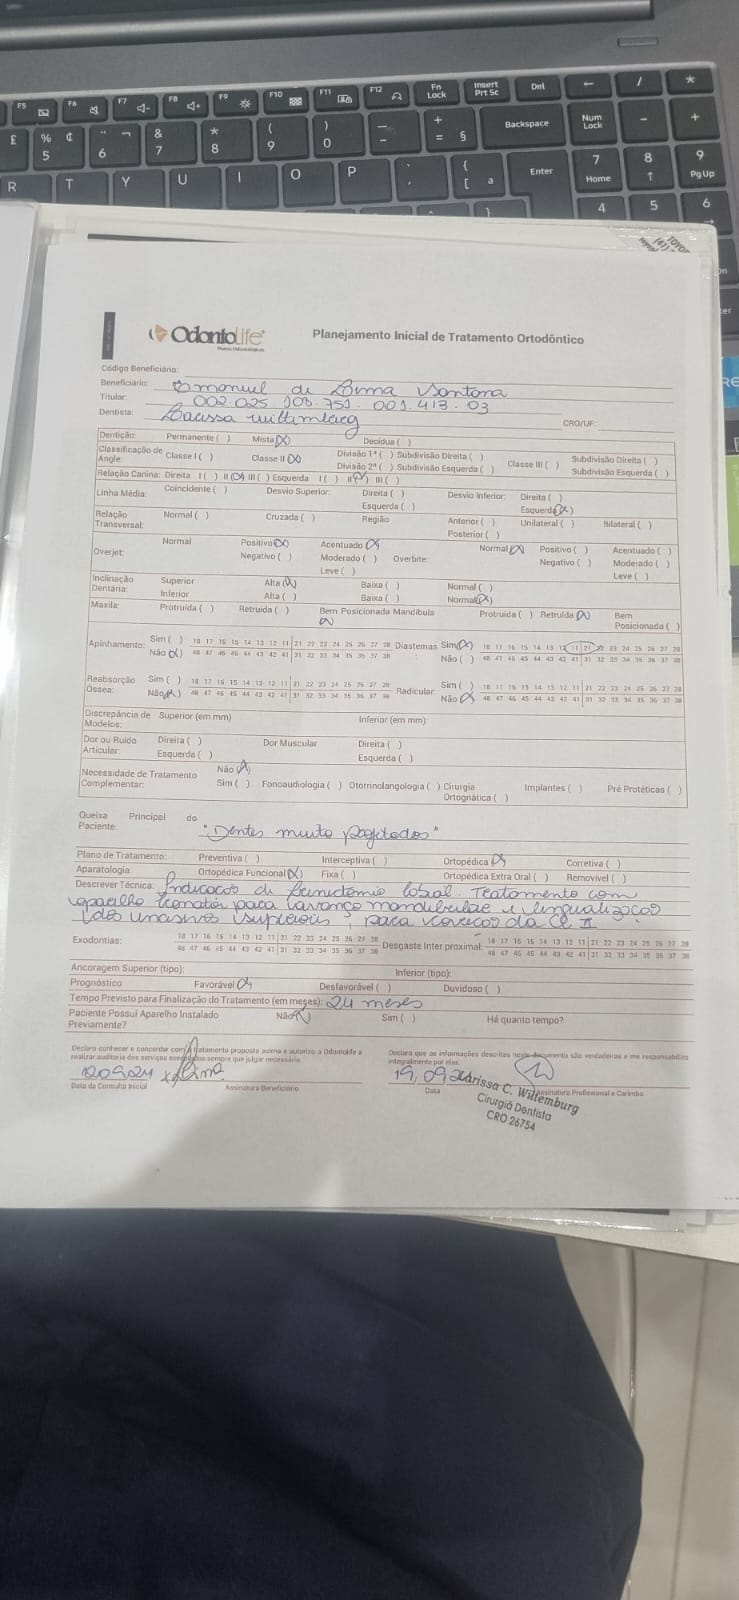 F5 F6 F7 F8 F9 F10 F11 F12 Fn Lock Insert Prt Sc Del ← / *
£ % 5 ¢ 6 & 7 * 8 ( 9 ) 0 - + = § Backspace Num Lock - +
R T Y U I O P { [ ª Enter 7 Home 8 ↑ 9 PgUp
4 5 6
OdontoLife
Planejamento Inicial de Tratamento Ortodôntico
Código Beneficiário:
Beneficiário: Emanuel de Lima Santana
Titular: 002.025.108.751.001.413.03
Dentista: Larissa Willemburg CRO/UF:
Dentição: Permanente ( ) Mista (X) Decídua ( )
Classificação de Angle: Classe I ( ) Classe II (X) Divisão 1ª ( ) Subdivisão Direita ( ) Classe III ( ) Subdivisão Direita ( )
Divisão 2ª ( ) Subdivisão Esquerda ( ) Subdivisão Esquerda ( )
Relação Canina: Direita I ( ) II (X) III ( ) Esquerda I ( ) II (X) III ( )
Linha Média: Coincidente ( ) Desvio Superior: Direita ( ) Desvio Inferior: Direita ( )
Esquerda ( ) Esquerda (X)
Relação Transversal: Normal ( ) Cruzada ( ) Região Anterior ( ) Unilateral ( ) Bilateral ( )
Posterior ( )
Overjet: Normal Positivo (X) Acentuado (X) Overbite: Normal (X) Positivo ( ) Acentuado ( )
Negativo ( ) Moderado ( ) Negativo ( ) Moderado ( )
Leve ( ) Leve ( )
Inclinação Dentária: Superior Alta (X) Baixa ( ) Normal ( )
Inferior Alta ( ) Baixa ( ) Normal (X)
Maxila: Protruída ( ) Retruída ( ) Bem Posicionada (X) Mandíbula Protruída ( ) Retruída (X) Bem Posicionada ( )
Apinhamento: Sim ( ) 18 17 16 15 14 13 12 11 21 22 23 24 25 26 27 28 Diastemas Sim (X) 18 17 16 15 14 13 12 11 21 22 23 24 25 26 27 28
Não (X) 48 47 46 45 44 43 42 41 31 32 33 34 35 36 37 38 Não ( ) 48 47 46 45 44 43 42 41 31 32 33 34 35 36 37 38
Reabsorção Óssea: Sim ( ) 18 17 16 15 14 13 12 11 21 22 23 24 25 26 27 28 Radicular: Sim ( ) 18 17 16 15 14 13 12 11 21 22 23 24 25 26 27 28
Não (X) 48 47 46 45 44 43 42 41 31 32 33 34 35 36 37 38 Não (X) 48 47 46 45 44 43 42 41 31 32 33 34 35 36 37 38
Discrepância de Modelos: Superior (em mm) Inferior (em mm):
Dor ou Ruído Articular: Direita ( ) Dor Muscular Direita ( )
Esquerda ( ) Esquerda ( )
Necessidade de Tratamento Complementar: Não (X)
Sim ( ) Fonoaudiologia ( ) Otorrinolaringologia ( ) Cirurgia Ortognática ( ) Implantes ( ) Pré Protéticas ( )
Queixa Principal do Paciente: "Dentes muito projetados"
Plano de Tratamento: Preventiva ( ) Interceptiva ( ) Ortopédica (X) Corretiva ( )
Aparatologia: Ortopédica Funcional (X) Fixa ( ) Ortopédica Extra Oral ( ) Removível ( )
Descrever Técnica: Indicação de frenectomia labial. Tratamento com
aparelho para avanço mandibular e lingualização
dos incisivos superiores, para correção da Cl II
Exodontias: 18 17 16 15 14 13 12 11 21 22 23 24 25 26 27 28 Desgaste Inter proximal: 18 17 16 15 14 13 12 11 21 22 23 24 25 26 27 28
48 47 46 45 44 43 42 41 31 32 33 34 35 36 37 38 48 47 46 45 44 43 42 41 31 32 33 34 35 36 37 38
Ancoragem Superior (tipo): Inferior (tipo):
Prognóstico Favorável (X) Desfavorável ( ) Duvidoso ( )
Tempo Previsto para Finalização do Tratamento (em meses): 24 meses
Paciente Possui Aparelho Instalado Previamente? Não (X) Sim ( ) Há quanto tempo?
Declaro conhecer e concordar com o tratamento proposto acima e autorizo a Odontolife a
realizar auditoria dos serviços executados sempre que julgar necessária.
Declaro que as informações descritas neste documento são verdadeiras e me responsabilizo
integralmente por elas.
Data da Consulta Inicial Assinatura Beneficiário
19,09,24 Data Assinatura Profissional e Carimbo
Larissa C. Willemburg
Cirurgiã Dentista
CRO 26754